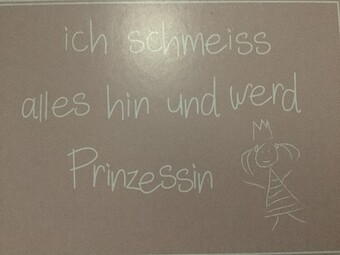 ich schmeiss
alles hin und werd
Prinzessin